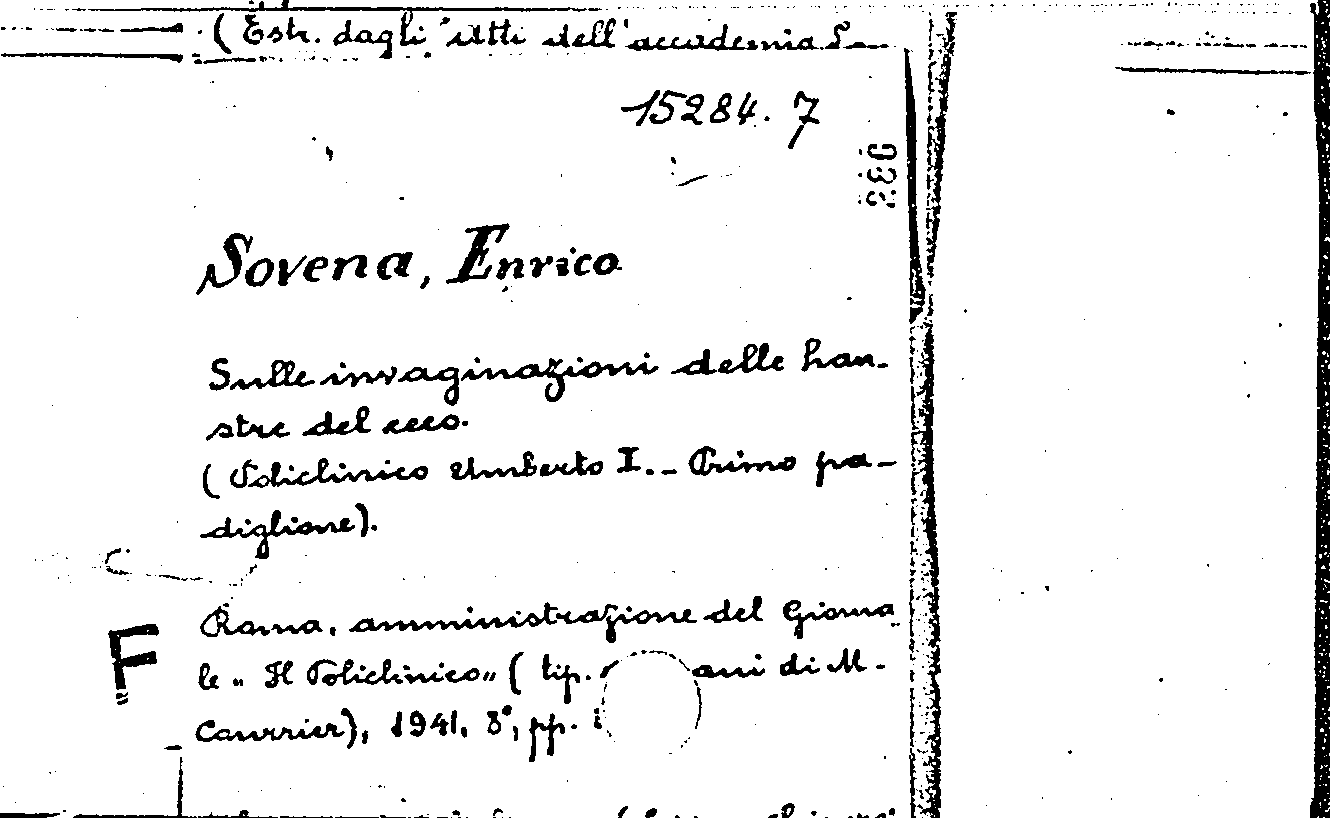 (Estr. dagli "Atti dell'accademia
15284. 7
Sovena, Enrico
Sulle invaginazioni delle han-
stre del ceco.
(Policlinico Umberto I. - Primo pa-
diglione).
Roma, amministrazione del Giorna
F
le „ Il Policlinico„ ( tip. di M.
Courrier), 1941, 8°, pp.